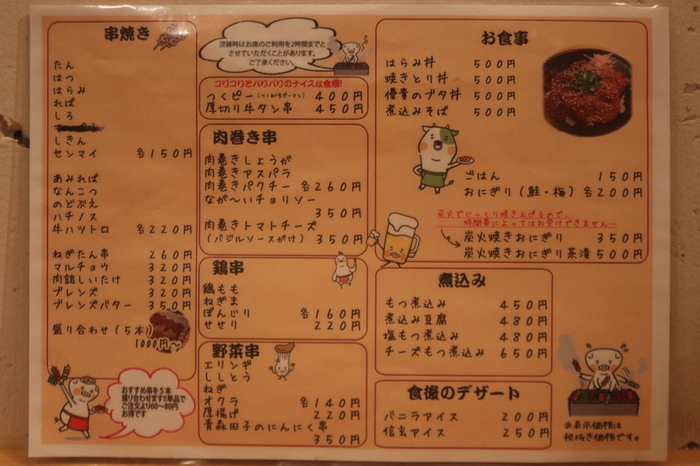 串焼き
たん
はつ
はらみ
ればー
しろ
しきん
センマイ 各150円
あみれば
なんこつ
のどぶえ
ハチノス
牛ハツトロ 各220円
ねぎたん串 260円
マルチョウ 320円
肉詰しいたけ 320円
ブレンズ 320円
ブレンズバター 350円
盛り合わせ(5本)
1000円〜
おすすめ串を5本
盛り合わせ!!単品で
ご注文より60〜80円
お得です
混雑時はお席のご利用を2時間までと
させていただくことがあります。
ご了承ください。
コリコリとパリパリのナイスな食感!
つくピー 400円
厚切り牛タン串 450円
肉巻き串
肉巻きしょうが
肉巻きアスパラ
肉巻きパクチー 各260円
なが〜いチョリソー
350円
肉巻きトマトチーズ
(バジルソースがけ) 350円
鶏串
鶏もも
ねぎま
ぼんじり 各160円
せせり 220円
野菜串
エリンギ
ししとう
ねぎ
オクラ 各140円
厚揚げ 220円
青森田子のにんにく串
350円
お食事
はらみ丼 500円
焼きとり丼 500円
優貴のブタ丼 500円
煮込みそば 500円
ごはん 150円
おにぎり(鮭・梅) 各200円
炭火でじっくり焼き上げるので、
時間帯によってはお受けできません…
炭火焼きおにぎり 350円
炭火焼きおにぎり茶漬 500円
煮込み
もつ煮込み 450円
煮込み豆腐 480円
塩もつ煮込み 480円
チーズもつ煮込み 650円
食後のデザート
バニラアイス 200円
信玄アイス 250円
※表示価格は
税抜き価格です。